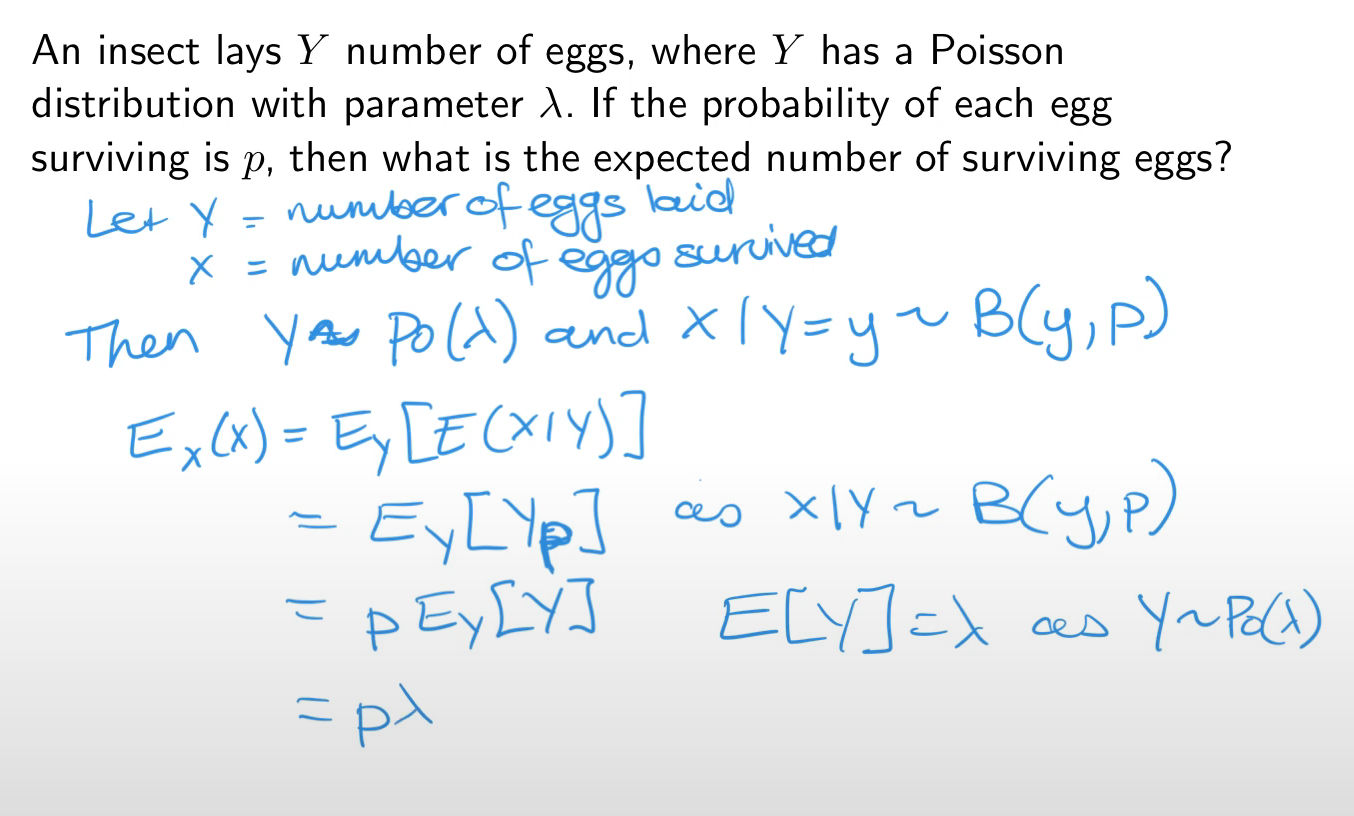 An insect lays Y number of eggs, where Y has a Poisson
distribution with parameter λ. If the probability of each egg
surviving is p, then what is the expected number of surviving eggs?
Let Y = number of eggs laid
X = number of eggs survived
Then Y ~ Po(λ) and X | Y = y ~ B(y, p)
E_X(X) = E_Y[E(X|Y)]
= E_Y[Yp] as X|Y ~ B(y,p)
= p E_Y[Y] E[Y] = λ as Y ~ Po(λ)
= pλ